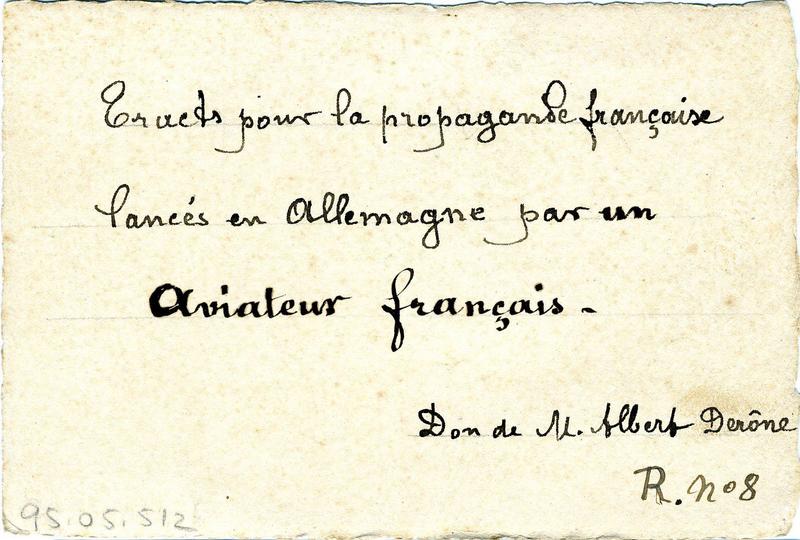 Tracts pour la propagande française
lancés en Allemagne par un
Aviateur français -
Don de M. Albert Derône
R. no 8
95.05.512